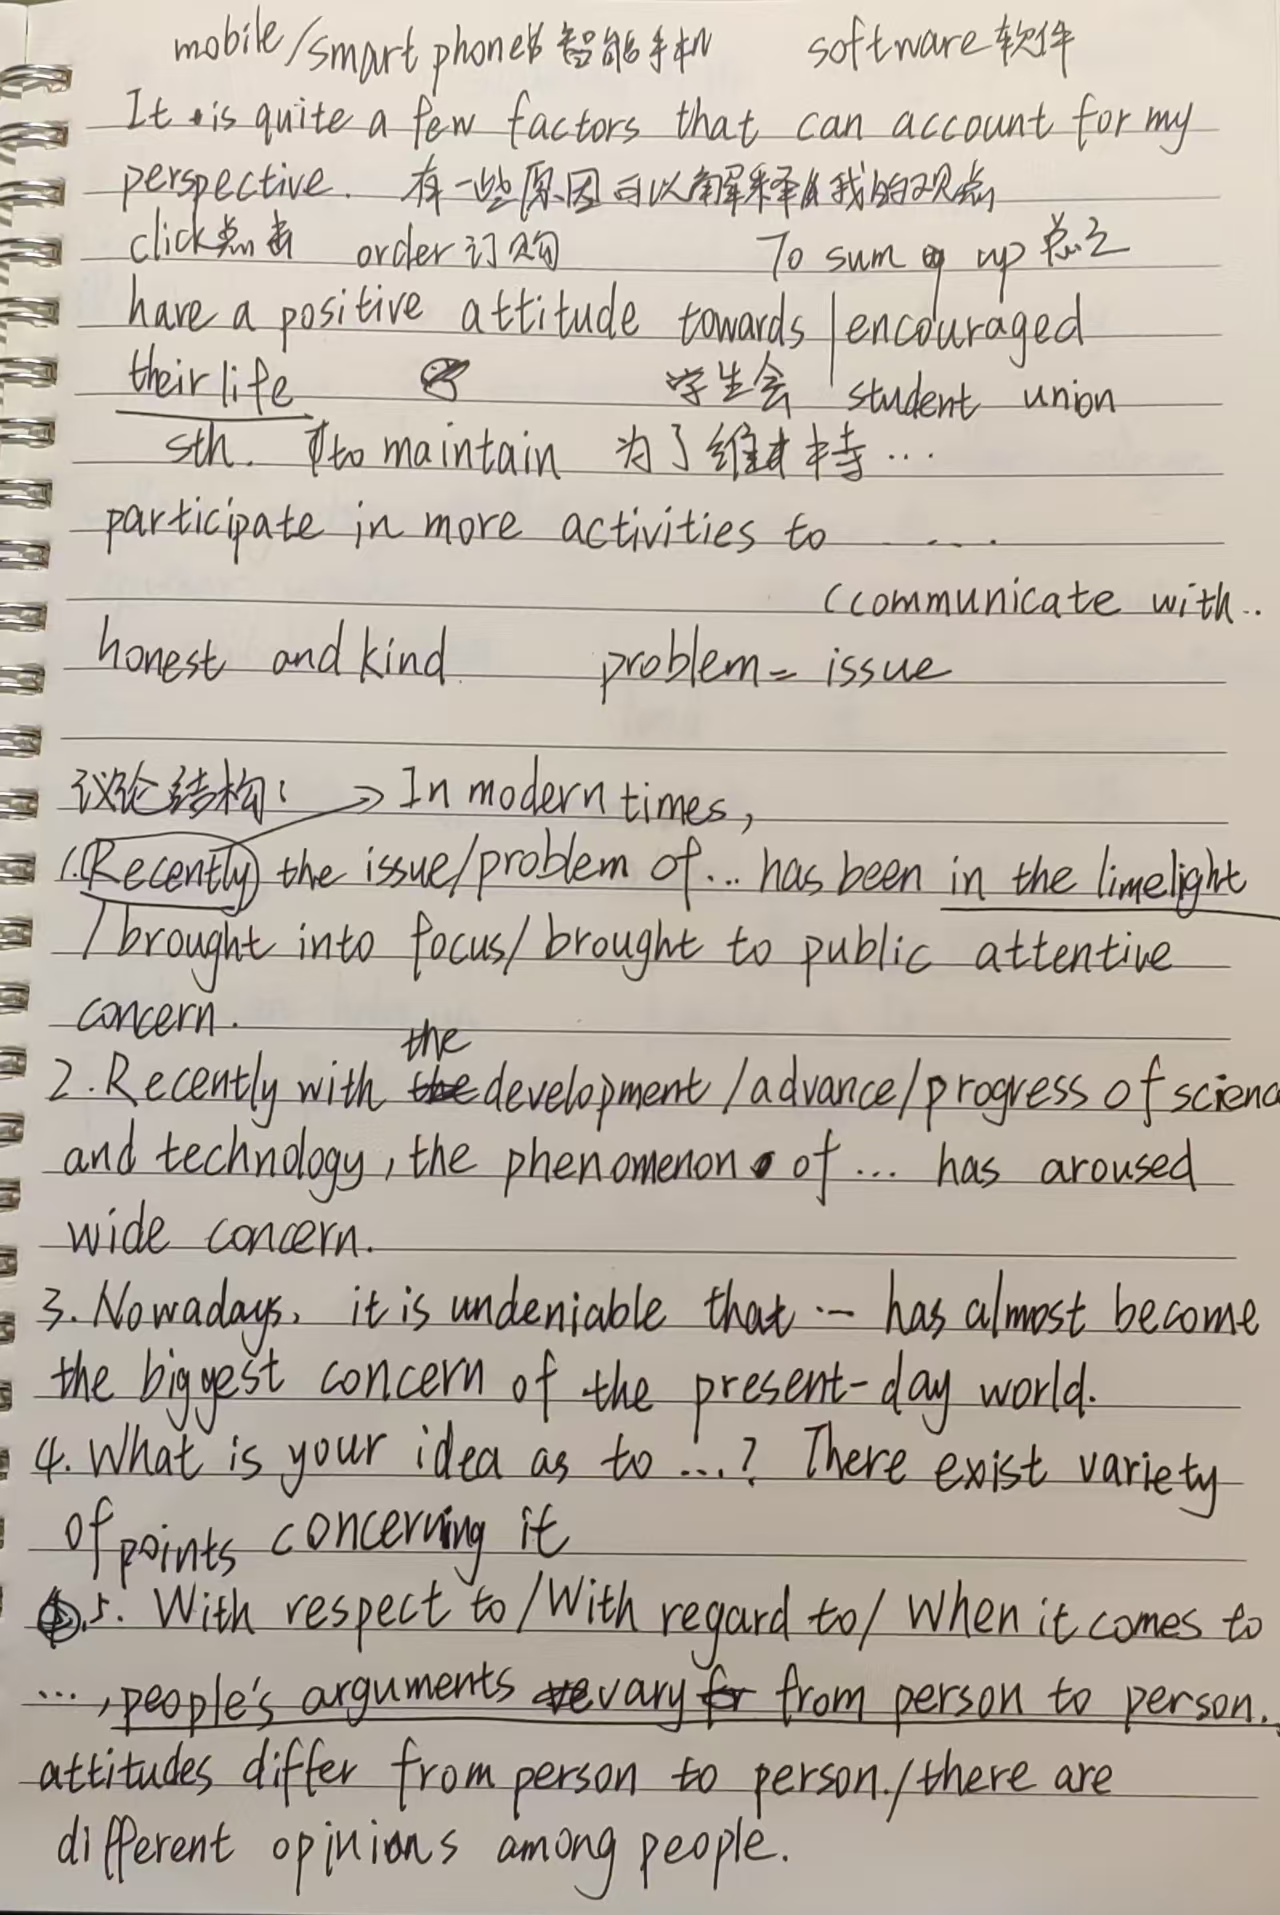 mobile/smart phone 智能手机 software 软件
It is quite a few factors that can account for my
perspective. 有一些原因可以解释我的观点
click点击 order订购 To sum up 总之
have a positive attitude towards | encouraged
their life 学生会 student union
sth. to maintain 为了维持…
participate in more activities to ....
(communicate with..
honest and kind. problem = issue
议论结构: → In modern times,
1. Recently the issue/problem of... has been in the limelight
/brought into focus/brought to public attentive
concern.
2. Recently with the development/advance/progress of scienc
and technology, the phenomenon of ... has aroused
wide concern.
3. Nowadays, it is undeniable that ... has almost become
the biggest concern of the present-day world.
4. What is your idea as to ...? There exist variety
of points concerning it
5. With respect to/With regard to/When it comes to
..., people's arguments vary from person to person.
attitudes differ from person to person./there are
different opinions among people.